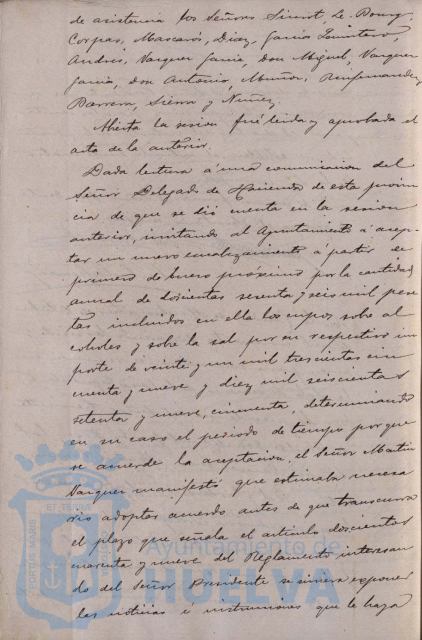 de asistencia los Señores Sinrot, Le Bourg,
Corpas, Mascarós, Diaz, Garcia Quintero,
Andres, Vazquez Garcia, Don Miguel, Vazquez
Garcia, Don Antonio, Muñoz,
Barrera, Sierra y Nuñez.
Abierta la sesion fué leida y aprobada el
acta de la anterior.
Dada lectura á una comunicacion del
Señor Delegado de Hacienda de esta provin
cia de que se dió cuenta en la sesion
anterior, invitando al Ayuntamiento á acep
tar un nuevo encabezamiento á partir de
primero de Enero próximo por la cantidad
anual de doscientas sesenta y seis mil pese
tas incluidos en ella los cupos sobre al
coholes y sobre la sal por su respectivo im
porte de veinte y un mil trescientas cin
cuenta y nueve y diez mil seiscientas
setenta y nueve, cincuenta, determinando
en su caso el periodo de tiempo porque
se acuerde la aceptacion, el Señor Martin
Vazquez manifestó que estimaba necesa
rio adoptar acuerdo antes de que transcurra
el plazo que señala el articulo doscientos
cuarenta y nueve del Reglamento interesan
do del Señor Presidente se sirviera exponer
las noticias é instrucciones que le haya
PORTUS MARIS
ET TERRÆ
Ayuntamiento de
HUELVA